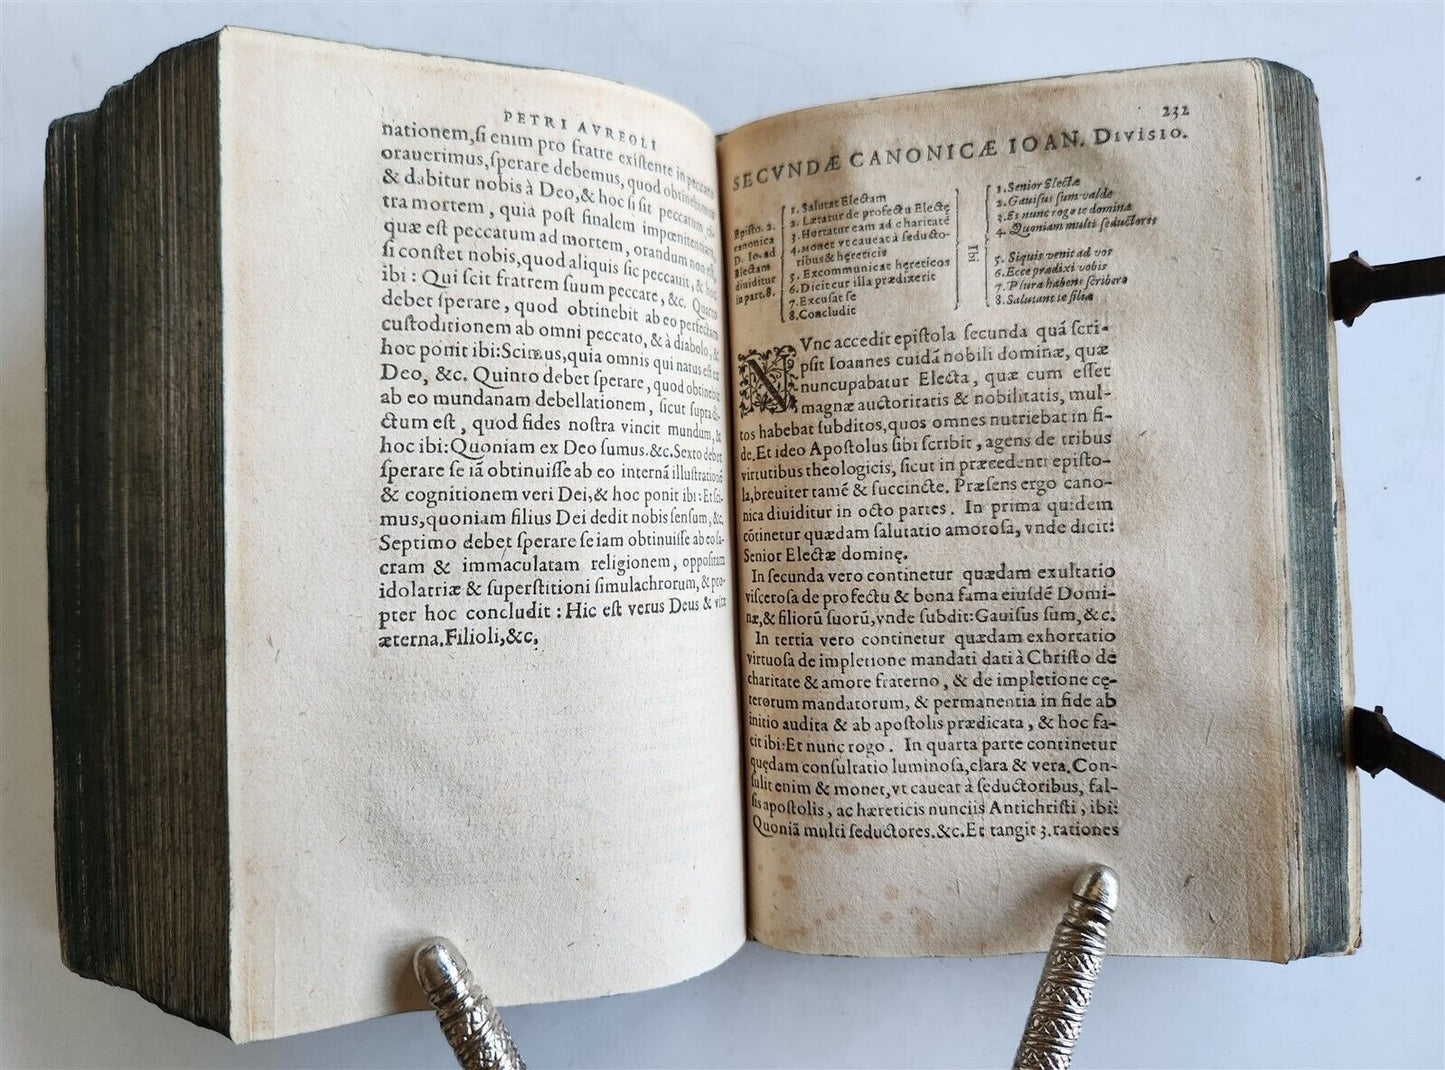 PETRI AVREOLI
nationem,ſi enim pro fratre exiſtente in peccato
orauerimus,ſperare debemus, quod obtinebimus
& dabitur nobis à Deo,& hoc ſi ſit peccatum
tra mortem, quia poſt finalem impœnitentiam,
quæ eſt peccatum ad mortem, orandum non eſt,
ſi conſtet nobis,quod aliquis ſic peccauit, & hoc
ibi: Qui ſcit fratrem ſuum peccare, &c. Quarto
debet ſperare, quod obtinebit ab eo perfectam
cuſtoditionem ab omni peccato, & à diabolo, &
hoc ponit ibi:Scimus,quia omnis qui natus eſt ex
Deo, &c. Quinto debet ſperare, quod obtinebit
ab eo mundanam debellationem, ſicut ſupra di-
ctum eſt, quod fides noſtra vincit mundum, &
hoc ibi:Quoniam ex Deo ſumus.&c.Sexto debet
ſperare ſe iā obtinuiſſe ab eo internā illuſtrationē
& cognitionem veri Dei,& hoc ponit ibi:Et ſci-
mus,quoniam filius Dei dedit nobis ſenſum,&c.
Septimo debet ſperare ſe iam obtinuiſſe ab eo ſa-
cram & immaculatam religionem, oppoſitam
idolatriæ & ſuperſtitioni ſimulachrorum, & pro-
pter hoc concludit : Hic eſt verus Deus & vita
æterna.Filioli,&c.
232
SECVNDÆ CANONICÆ IOAN. Diviſio.
Epiſto. 2.
canonica
D. Io. ad
Electam
diuiditur
in part.8.
1. Salutat Electam
2. Lætatur de profectu Electę
3. Hortatur eam ad charitatē
4. Monet vt caueat à ſeducto-
ribus & hęreticis
5. Excommunicat hęreticos
6. Dicit cur illa prædixerit
7. Excuſat ſe
8. Concludit
Ibi
1. Senior Electæ
2. Gauiſus ſum valde
3. Et nunc rogo te domina
4. Quoniam multi ſeductores
5. Siquis venit ad vos
6. Ecce prædixi vobis
7. Plura habens ſcribere
8. Salutant te filia
NVnc accedit epiſtola ſecunda quā ſcri-
pſit Ioannes cuidā nobili dominæ, quæ
nuncupabatur Electa, quæ cum eſſet
magnæ auctoritatis & nobilitatis, mul-
tos habebat ſubditos,quos omnes nutriebat in fi-
de.Et ideo Apoſtolus ſibi ſcribit, agens de tribus
virtutibus theologicis, ſicut in præcedenti epiſto-
la,breuiter tamē & ſuccincte. Præſens ergo cano-
nica diuiditur in octo partes. In prima quidem
cōtinetur quædam ſalutatio amoroſa, vnde dicit:
Senior Electæ dominę.
In ſecunda vero continetur quædam exultatio
viſceroſa de profectu & bona fama eiuſdē Domi-
næ,& filiorū ſuorū,vnde ſubdit:Gauiſus ſum,&c.
In tertia vero continetur quædam exhortatio
virtuoſa de impletione mandati dati à Chriſto de
charitate & amore fraterno, & de impletione cę-
terorum mandatorum, & permanentia in fide ab
initio audita & ab apoſtolis prædicata, & hoc fa-
cit ibi:Et nunc rogo. In quarta parte continetur
quędam conſultatio luminoſa,clara & vera.Con-
ſulit enim & monet,vt caueat à ſeductoribus, fal-
ſis apoſtolis, ac hæreticis nunciis Antichriſti, ibi:
Quoniā multi ſeductores.&c.Et tangit 3.rationes